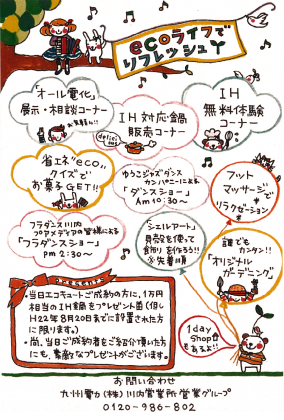 ecoライフで
リフレッシュ
「オール電化」
展示・相談コーナー
お気軽に!!
IH対応鍋
販売コーナー
IH
無料体験
コーナー
省エネ"eco"
クイズで
お菓子GET!!
ゆうこジャズダンス
カンパニーによる
「ダンスショー」
Am 10:30〜
フット
マッサージで
リラクゼーション
フラダンス川内
プロアメディアの皆様による
「フラダンスショー」
pm 2:30〜
「シェルアート」
貝殻を使って
飾りを作ろう!!
※先着順
誰でも
カンタン!!
「オリジナル
ガーデニング」
PRESENTS
・当日エコキュートご成約の方に、1万円
相当のIH鍋をプレゼント(但し
H22年8月20日までに設置された方
に限ります。)
・尚、当日ご成約者をご紹介頂いた方
にも、素敵なプレゼントがございます。
1day
Shop
もあるよ!!
お問い合わせ
九州電力(株)川内営業所営業グループ
0120-986-802